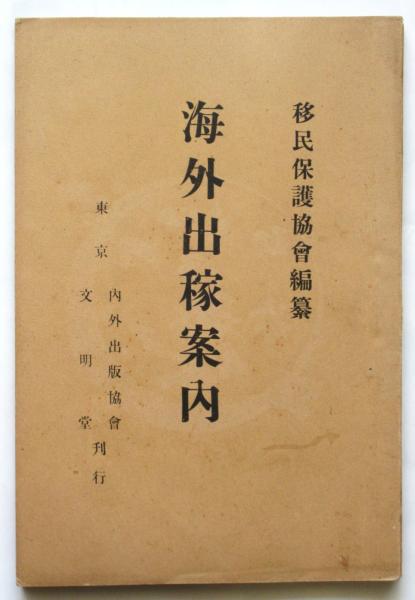 移民保護協會編纂
海外出稼案内
東京
內外出版協會
文明堂
刊行